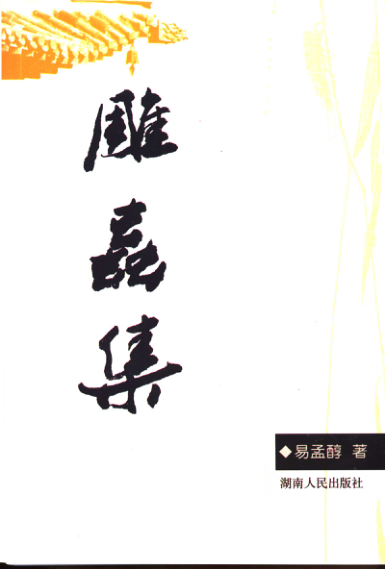 雕蟲集
◆易孟醇 著
湖南人民出版社